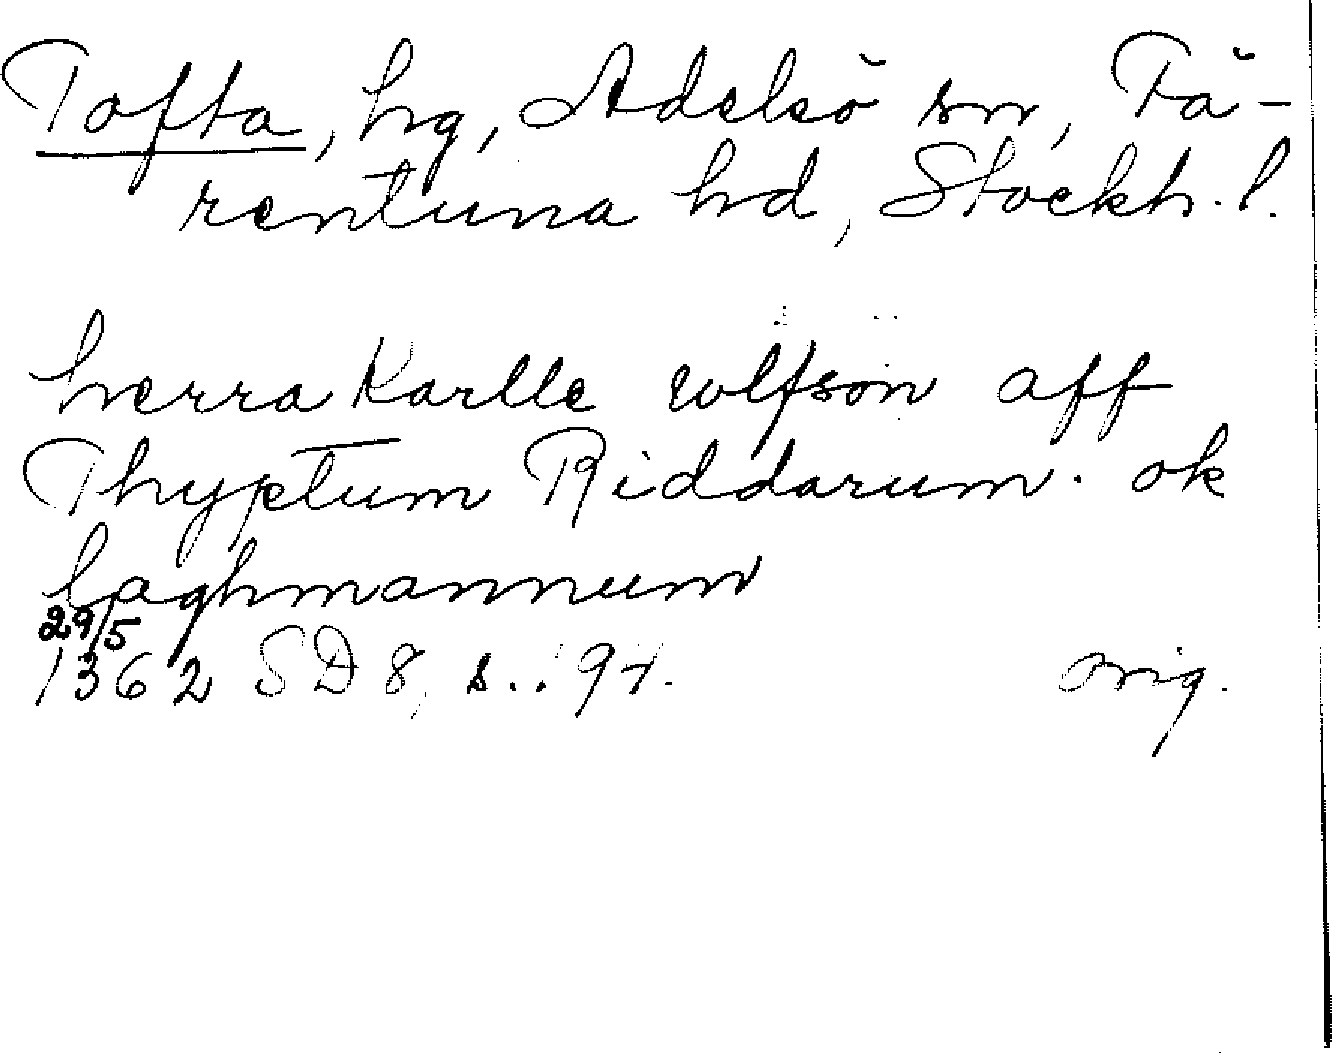 Tofta, hg, Adelsö sn, Fä-
rentuna hd, Stockh. l.
herra Karlle wlfsön aff
Thyptum Riddarum. ok
laghmannum
29/5
1362 SD 8, s. 94. orig.